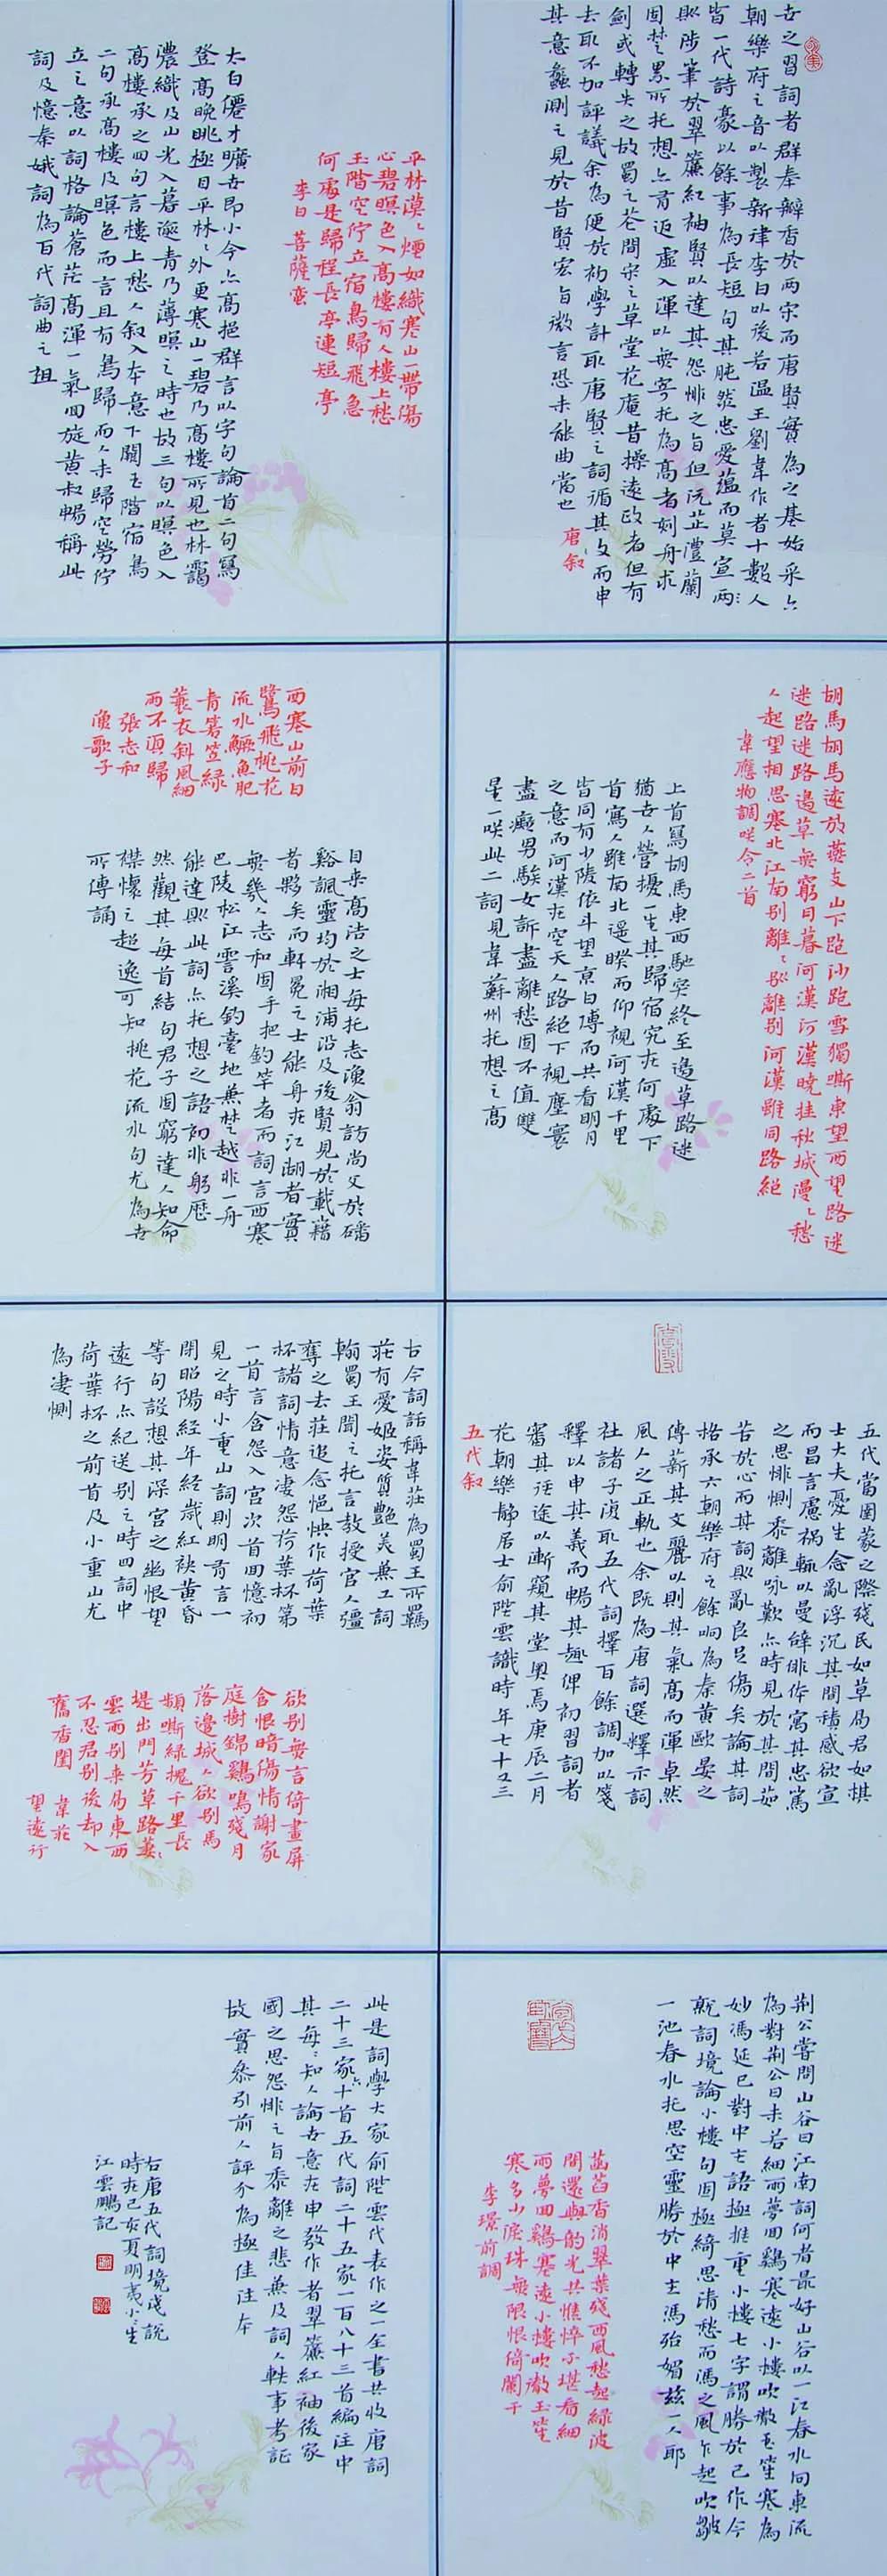 世之習詞者群奉瓣香於兩宋而唐賢實為之基始采六
朝樂府之音以製新律李白以後若溫王劉韋作者十數人
皆一代詩豪以餘事為長短句其肫然忠愛蘊而莫宣兩
則涉筆於翠簾紅袖賢以達其怨悱之旨但沅芷澧蘭
固楚累所托想亦有返虛入渾以無寄托為高者刻舟求
劍或轉失之故蜀之花間宋之草堂花庵昔操遠政者但有
去取不加評議余為便於初學計取唐賢之詞循其文而申
其意蠡測之見於昔賢宏旨微言恐未能曲當也
唐叙
平林漠漠煙如織寒山一帶傷
心碧暝色入高樓有人樓上愁
玉階空佇立宿鳥歸飛急
何處是歸程長亭連短亭
李白菩薩蠻
太白僊才曠世即小令亦高挹群言以字句論首二句寫
登高晚眺極目平林林外更寒山一碧乃高樓所見也林靄
濃織及山光入暮遂青乃薄暝之時也故三句以暝色入
高樓承之四句言樓上愁人叙入本意下闋玉階宿鳥
二句承高樓及暝色而言且有鳥歸而人未歸空勞佇
立之意以詞格論蒼茫高渾一氣回旋黃叔暘稱此
詞及憶秦娥詞為百代詞曲之祖
胡馬胡馬遠放燕支山下跑沙跑雪獨嘶東望西望路迷
迷路迷路邊草無窮日暮河漢河漢曉挂秋城漫漫愁
人起望相思塞北江南別離離別離別河漢雖同路絕
韋應物調笑令二首
上首寫胡馬東西馳突終至邊草路迷
猶世人營擾一生其歸宿究在何處下
首寫人雖南北遥睽而仰視河漢千里
皆同有少陵依斗望京白傅而共看明月
之意而河漢在空天人路絕下視塵寰
盡癡男騃女訴盡離愁固不值雙
星一咲此二詞見韋蘇州托想之高
西塞山前白
鷺飛桃花
流水鱖魚肥
青箬笠綠
蓑衣斜風細
雨不須歸
張志和
漁歌子
自來高洁之士每托志漁翁訪尚父於磻
谿諷靈均於湘浦沿及後賢見於載籍
者夥矣而軒冕之士能舟在江湖者實
無幾人志和固手把釣竿者而詞言西塞
巴陵松江雲溪釣臺地兼楚越非一舟
能達則此詞亦托想之語初非躬歷
然觀其每首結句君子固窮達人知命
襟懷之超逸可知桃花流水句尤為世
所傳誦
五代當圍蒙之際殘民如草局君如棋
士大夫憂生念亂浮沉其間積感欲宣
而昌言慮禍輒以曼辭俳体寓其忠篤
之思悱惻黍離咏歎亦時見於其間茹
苦於心而其詞則亂良足傷矣論其詞
格承六朝樂府之餘响為秦黃歐晏之
傳薪其文麗以則其氣高而渾卓然
風人之正軌也余既為唐詞選釋示詞
社諸子復取五代詞擇百餘調加以箋
釋以申其義而暢其趣俾初習詞者
審其涇途以漸窺其堂奧焉庚辰二月
花朝樂靜居士俞陛雲識時年七十又三
五代叙
古今詞話稱韋莊為蜀王所羈
莊有愛姬姿質艷美兼工詞
翰蜀王聞之托言教授宮人彊
奪之去莊追念悒怏作荷葉
杯諸詞情意凄怨荷葉杯第
一首言含怨入宮次首回憶初
見之時小重山詞則明有言一
閉昭陽經年經歲紅袂黃昏
等句設想其深宮之幽恨望
遠行亦紀送別之時四詞中
荷葉杯之前首及小重山尤
為凄惻
欲別無言倚畫屏
含恨暗傷情謝家
庭樹錦鷄鳴殘月
落邊城人欲別馬
頻嘶綠槐千里長
堤出門芳草路萋萋
雲雨別來易東西
不忍君別後却入
舊香閨 韋莊
望遠行
荆公嘗問山谷曰江南詞何者最好山谷以一江春水向東流
為對荆公曰未若細雨夢回鷄塞遠小樓吹徹玉笙寒為
妙馮延巳對中主語極推重小樓七字謂勝於己作今
就詞境論小樓句固極綺思清愁而馮之風乍起吹皺
一池春水托思空靈勝於中主馮殆媚茲一人耶
菡萏香消翠葉殘西風愁起綠波
間還與韶光共憔悴不堪看細
雨夢回鷄塞遠小樓吹徹玉笙
寒多少淚珠無限恨倚闌干
李璟前調
此是詞學大家俞陛雲代表作之一全書共收唐詞
二十三家六十首五代詞二十五家一百八十三首編注中
其每每知人論世意在申發作者翠簾紅袖後家
國之思怨悱之旨黍離之悲兼及詞人軼事考証
故實叅引前人評介為極佳注本
右唐五代詞境淺說
時在己亥夏明夷小生
江雲鵬記